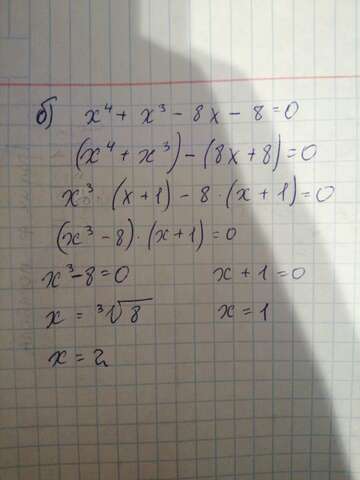 б) x⁴ + x³ - 8x - 8 = 0
(x⁴ + x³) - (8x + 8) = 0
x³ · (x + 1) - 8 · (x + 1) = 0
(x³ - 8) · (x + 1) = 0
x³ - 8 = 0 x + 1 = 0
x = ³√8 x = 1
x = 2